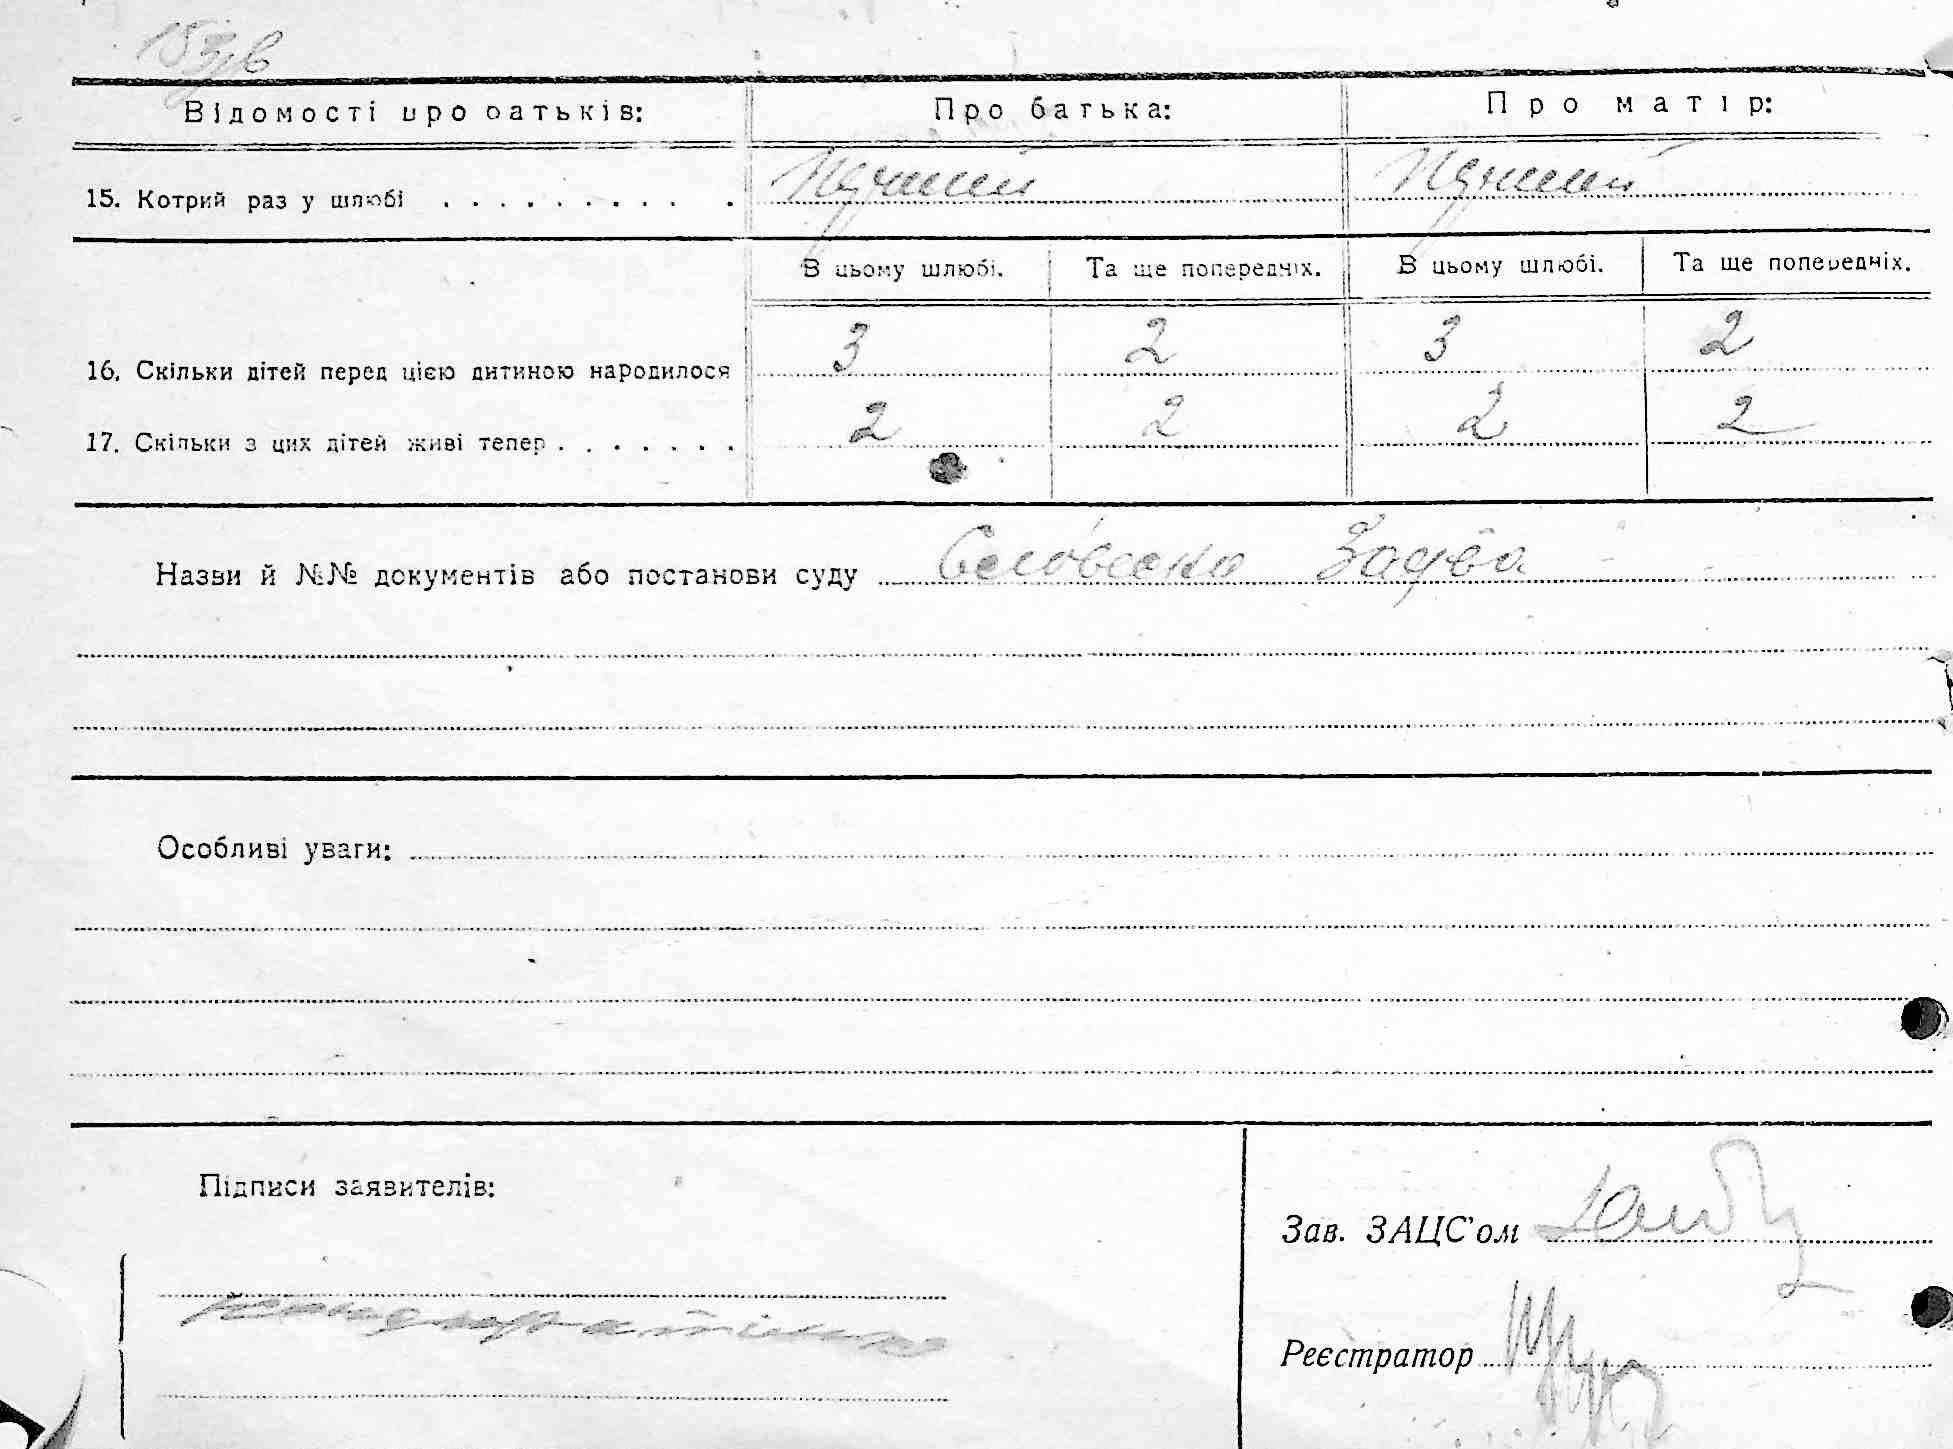 Відомості про батьків: Про батька: Про матір:
15. Котрий раз у шлюбі . . . . . . . . . . Перший Перший
В цьому шлюбі. Та ще попередніх. В цьому шлюбі. Та ще попередніх.
16. Скільки дітей перед цією дитиною народилося 3 2 3 2
17. Скільки з цих дітей живі тепер . . . . . . . 2 2 2 2
Назви й №№ документів або постанови суду Словесна Заява
Особливі уваги:
Підписи заявителів:
Зав. ЗАЦС'ом
Реєстратор